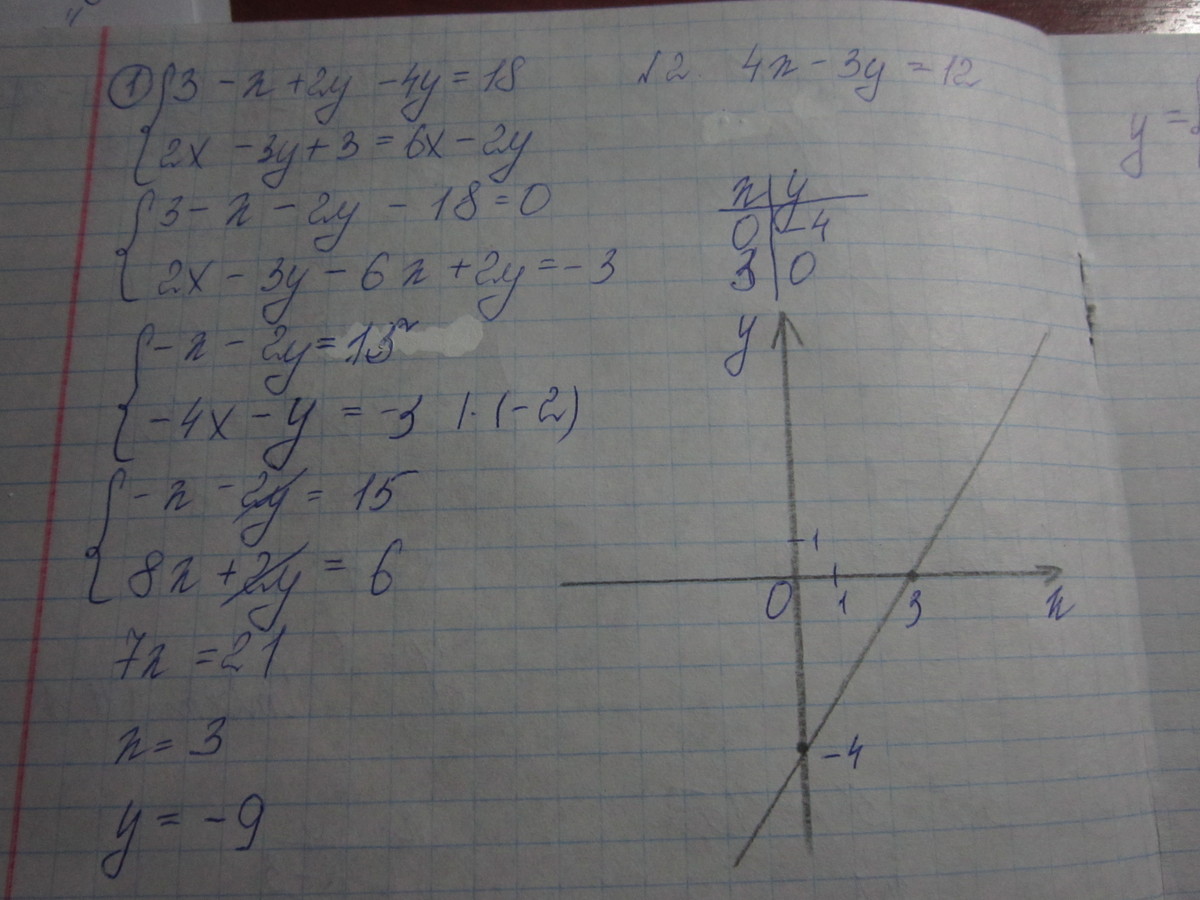 ① { 3 - x + 2y - 4y = 18
2x - 3y + 3 = 6x - 2y
{ 3 - x - 2y - 18 = 0
2x - 3y - 6x + 2y = -3
{ -x - 2y = 15
-4x - y = -3 | · (-2)
{ -x - 2y = 15
8x + 2y = 6
7x = 21
x = 3
y = -9
№2. 4x - 3y = 12
x | y
0 | -4
3 | 0
y
1
0 1 3 x
-4
y =